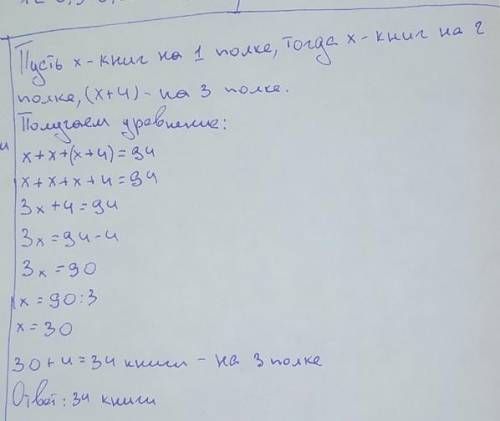 Пусть х - книг на 1 полке, тогда х - книг на 2
полке, (х+4) - на 3 полке.
Получаем уравнение:
х+х+(х+4)=94
х+х+х+4=94
3х+4=94
3х=94-4
3х=90
х=90:3
х=30
30+4=34 книги - на 3 полке
Ответ: 34 книги